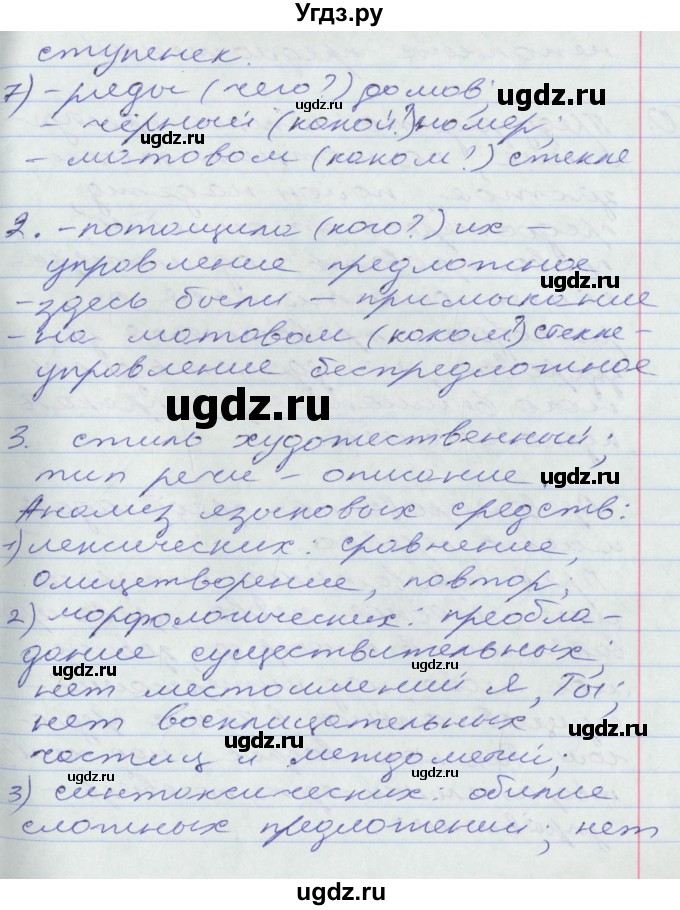 Угдз.ру
ступенек.
7) - ряды (чего?) домов;
- чёрный (какой?) номер;
- матовом (каком?) стекле
2. - потащила (кого?) их -
управление предложное
- здесь были - примыкание
- на матовом (каком?) стекле -
управление беспредложное
3. стиль художественный;
тип речи - описание.
Анализ языковых средств:
1) лексических: сравнение,
олицетворение, повтор;
2) морфологических: преобла-
дание существительных;
нет местоимений я, ты;
нет восклицательных
частиц и междометий;
3) синтаксических: обилие
сложных предложений, нет
ugdz.ru
ugdz.ru
ugdz.ru
ugdz.ru
ugdz.ru
ugdz.ru
ugdz.ru
ugdz.ru
ugdz.ru
ugdz.ru
ugdz.ru
ugdz.ru
ugdz.ru